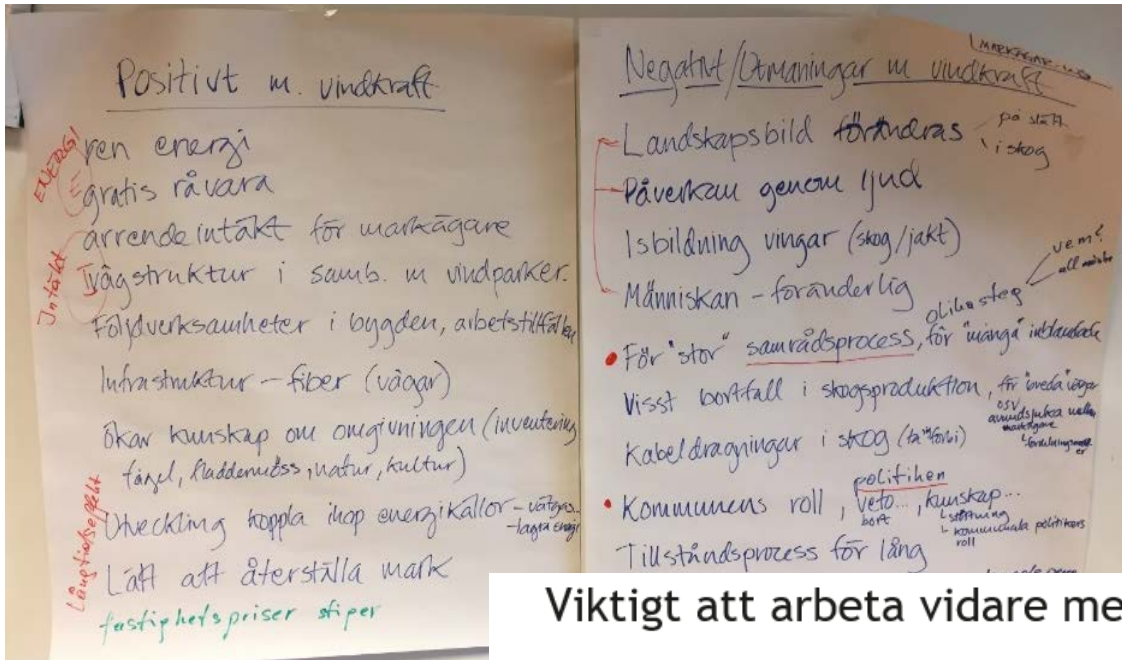 Positivt m. vindkraft
ENERGI
ren energi
gratis råvara
Intäkt
arrendeintäkt för markägare
vägstruktur i samb. m vindparker.
Följdverksamheter i bygden, arbetstillfällen
Infrastruktur – fiber (vägar)
Ökar kunskap om omgivningen (inventering
fågel, fladdermöss, natur, kultur)
Långtidseffekt
Utveckling koppla ihop energikällor – vätgas..
– lagra energi
Lätt att återställa mark
fastighetspriser stiger
Negativt/Utmaningar m vindkraft
Landskapsbild förändras
på slätt
i skog
Påverkan genom ljud
Isbildning vingar (skog/jakt)
Människan – föränderlig
vem?
olika steg
• För "stor" samrådsprocess, för "många" inblandade
Visst bortfall i skogsproduktion, för "breda" vägar
osv
avundsjuka mellan
markägare
Kabeldragningar i skog
politiken
• Kommunens roll, veto..., kunskap...
bort
kommunala politikers
roll
Tillståndsprocess för lång
Viktigt att arbeta vidare me